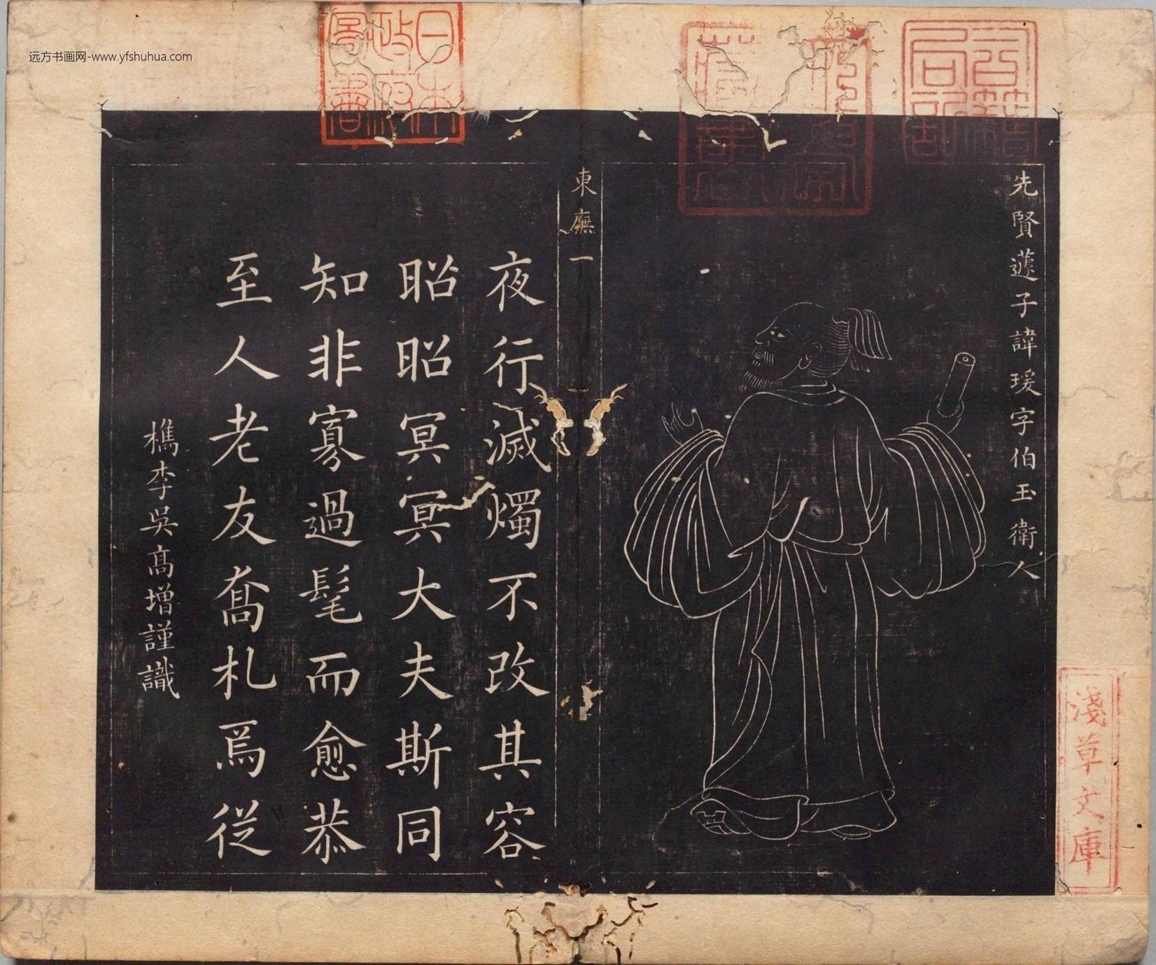 远方书画网-www.yfshuhua.com
先賢蘧子諱瑗字伯玉衛人
東廡一
夜行滅燭不改其容
昭昭冥冥大夫斯同
知非寡過髦而愈恭
至人老友喬札爲從
檇李吳髙增謹識
日本
政府
圖書
淺草文庫